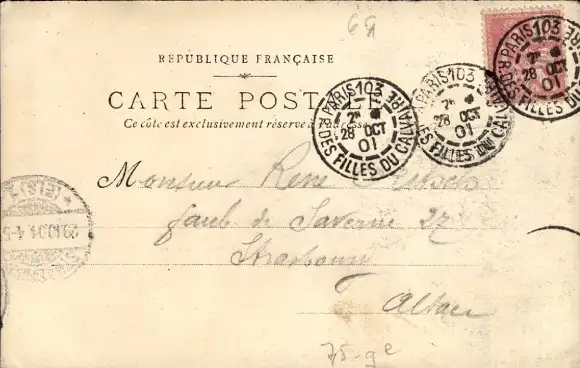 6g
RÉPUBLIQUE FRANÇAISE
CARTE POSTALE
Ce côté est exclusivement réservé à l'adresse
PARIS 103
2E
28 OCT
01
R. DES FILLES DU CALVAIRE
PARIS 103
2E
28 OCT
01
R. DES FILLES DU CALVAIRE
PARIS 103
2E
28 OCT
01
R. DES FILLES DU CALVAIRE
Monsieur René
faub. de Saverne 27
Strasbourg
Alsace
(ELS.)
29.10.01. 4-5
75-ge